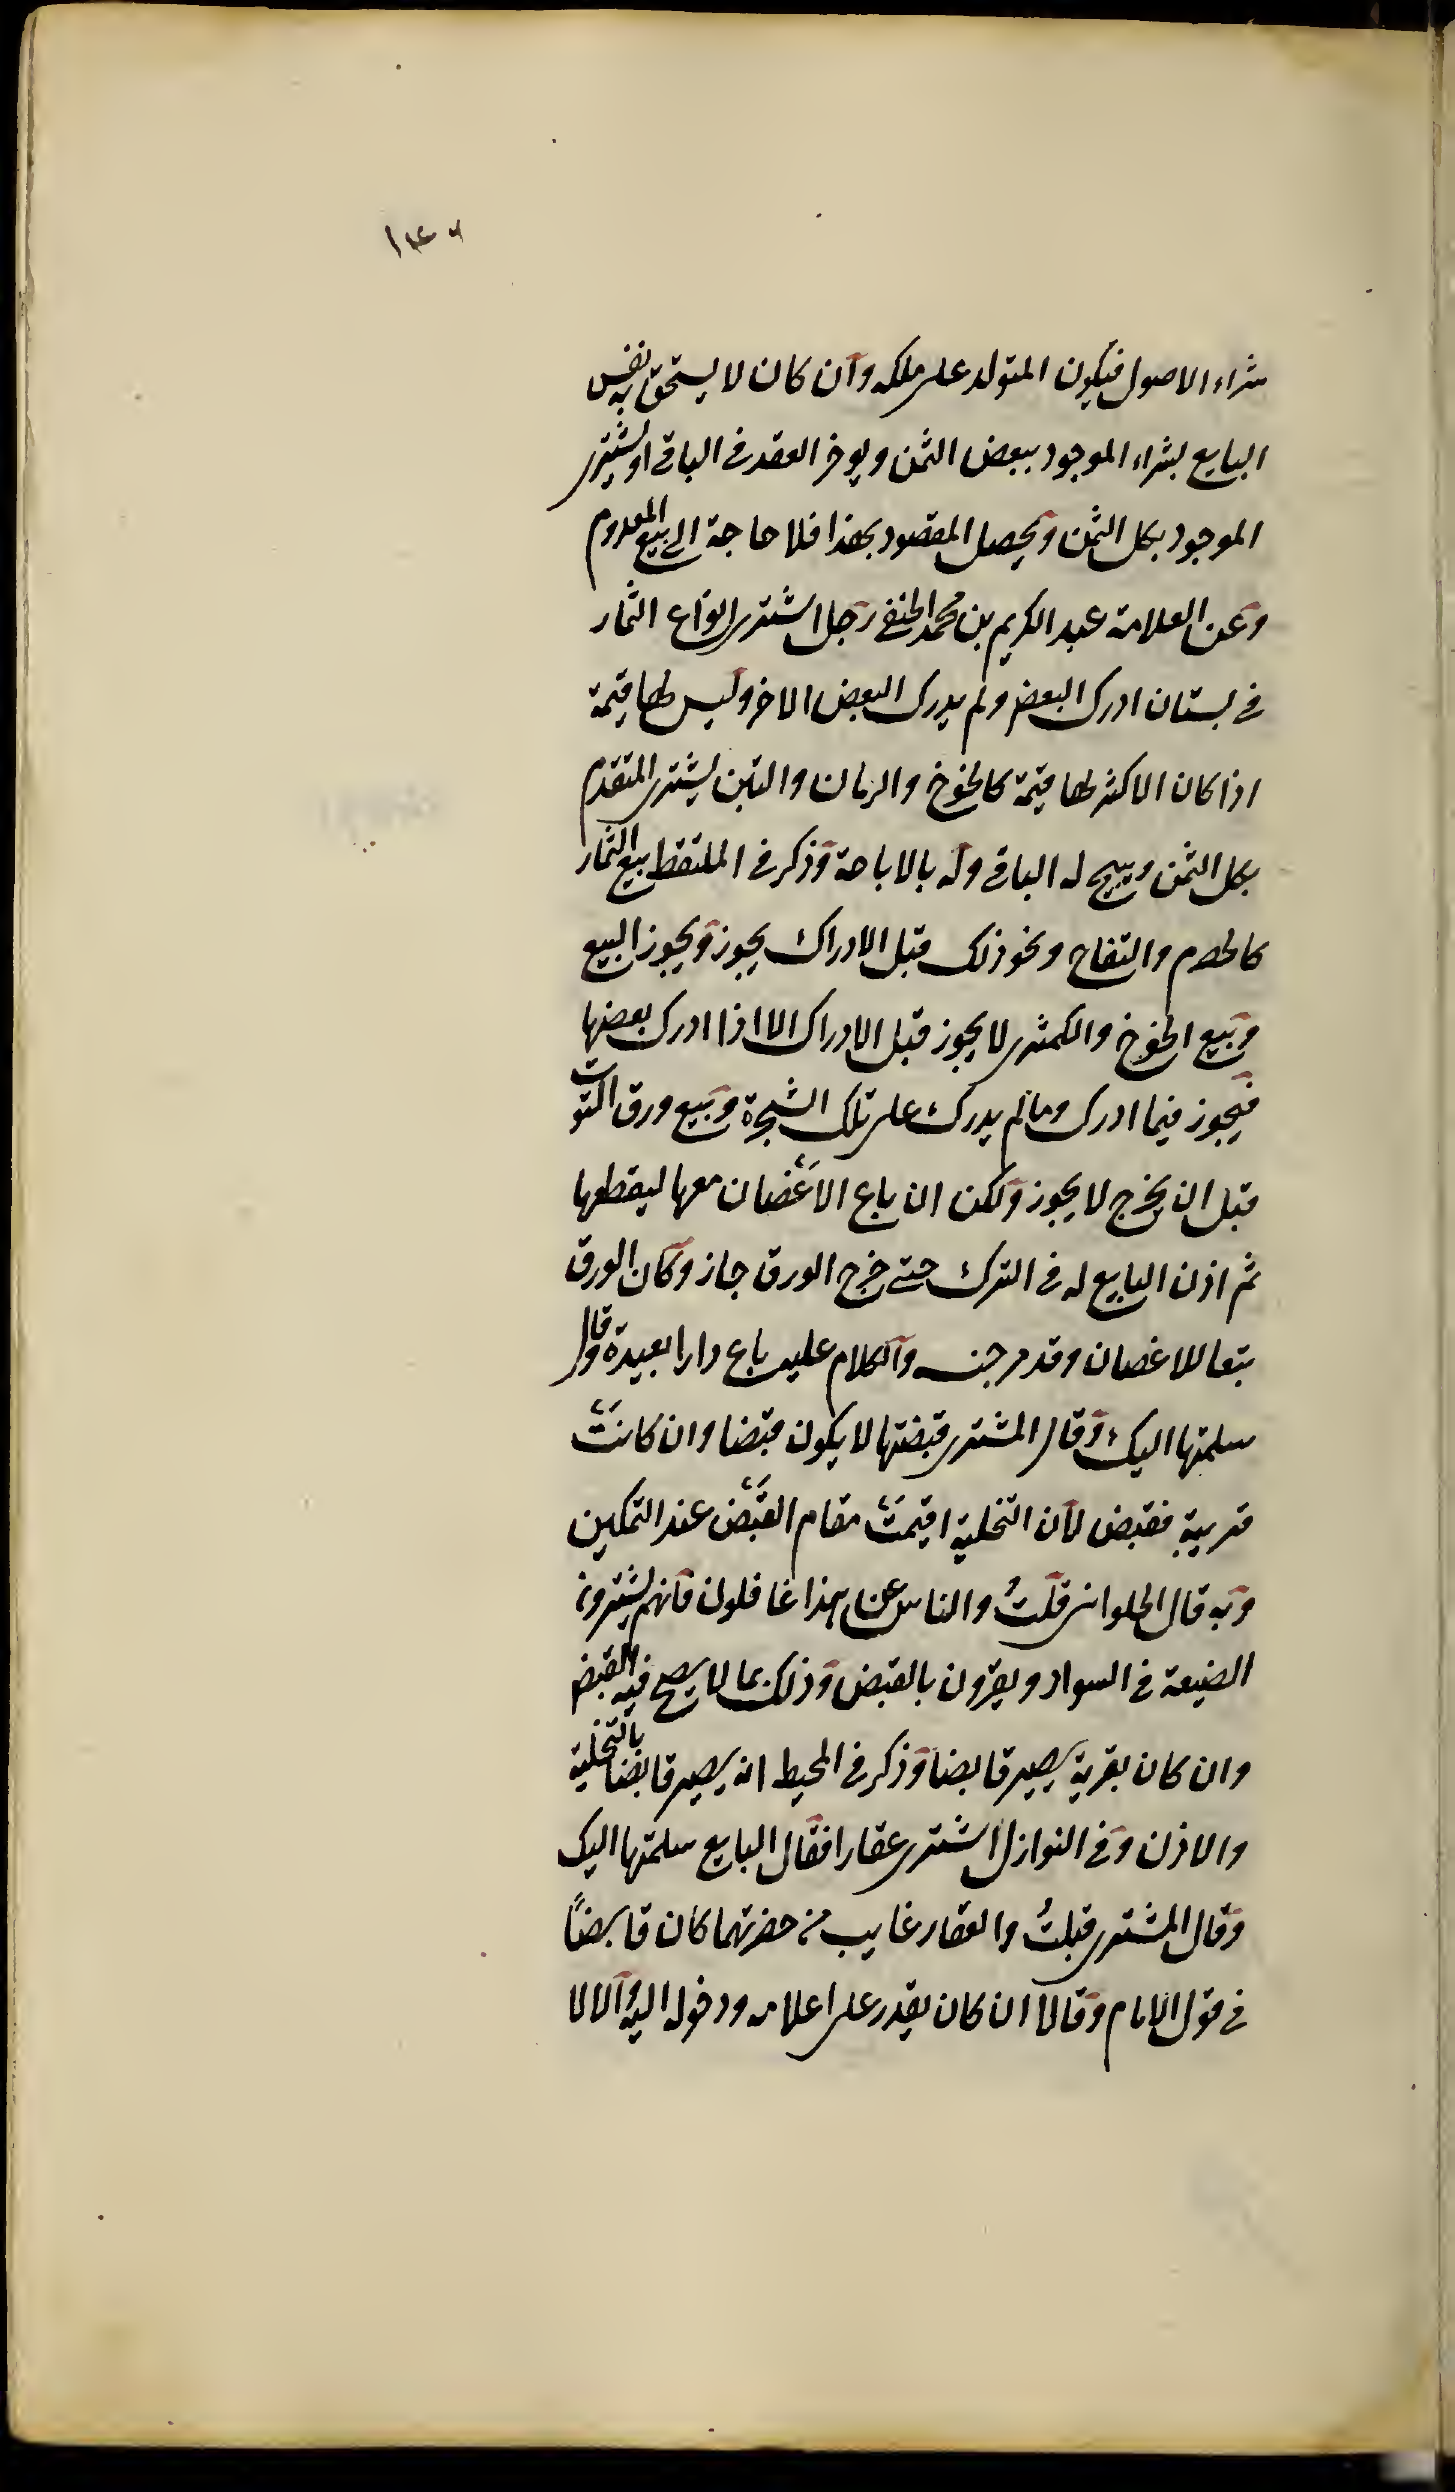 ١٤٦
شراء الاصول فيكون المتولد على ملكه وان كان لا يستحق به نفس
البايع بشراء الموجود ببعض الثمن ويوخر العقد فى الباقى او يشترى
الموجود بكل الثمن ويحصل المقصود بهذا فلا حاجة الى بيع المعدوم
وعن العلامة عبد الكريم بن محمد الحنفى رجل اشترى انواع الثمار
فى بستان ادرك البعض ولم يدرك البعض الاخر وليس لها قيمة
اذا كان الاكثر لها قيمة كالخوخ والرمان والتين يشترى المتقدم
بكل الثمن ويبيح له الباقى وله بالاباحة وذكر فى الملتقط بيع الثمار
كالحصرم والتفاح ونحو ذلك قبل الادراك يجوز ويجوز البيع
وبيع الخوخ والكمثرى لا يجوز قبل الادراك الا اذا ادرك بعضها
فيجوز فيما ادرك وما لم يدرك على تلك الشجرة وبيع ورق التوت
قبل ان يخرج لا يجوز ولكن ان باع الاغضان معها ليقطعها
ثم اذن البايع له فى الترك حتى خرج الورق جاز وكان الورق
تبعا للاغصان وقد مر جنسه والكلام عليه باع دارا بعيدة وقال
سلمتها اليك وقال المشترى قبضتها لا يكون قبضا وان كانت
قريبة فقبض لان التخلية اقيمت مقام القبض عند التمكين
وبه قال الحلوانى قلتُ والناس عن هذا غافلون فانهم يشترون
الضيعة فى السواد ويقرون بالقبض وذلك مما لا يصح فيه القبض
وان كان بقربة يصير قابضا وذكر فى المحيط انه يصير قابضا بالتخلية
والاذن وفى النوازل اشترى عقارا فقال البايع سلمتها اليك
وقال المشترى قبلتُ والعقار غايب من حضرتهما كان قابضًا
فى قول الامام وقالا ان كان يقدر على اعلامه ودخوله اليه والا لا